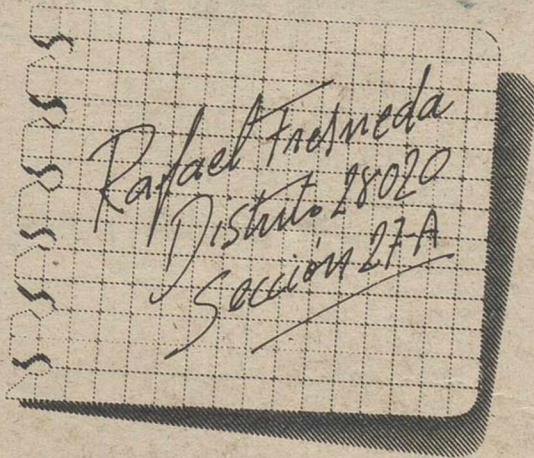 Rafael Fresneda
Distrito 28020
Sección 27-A